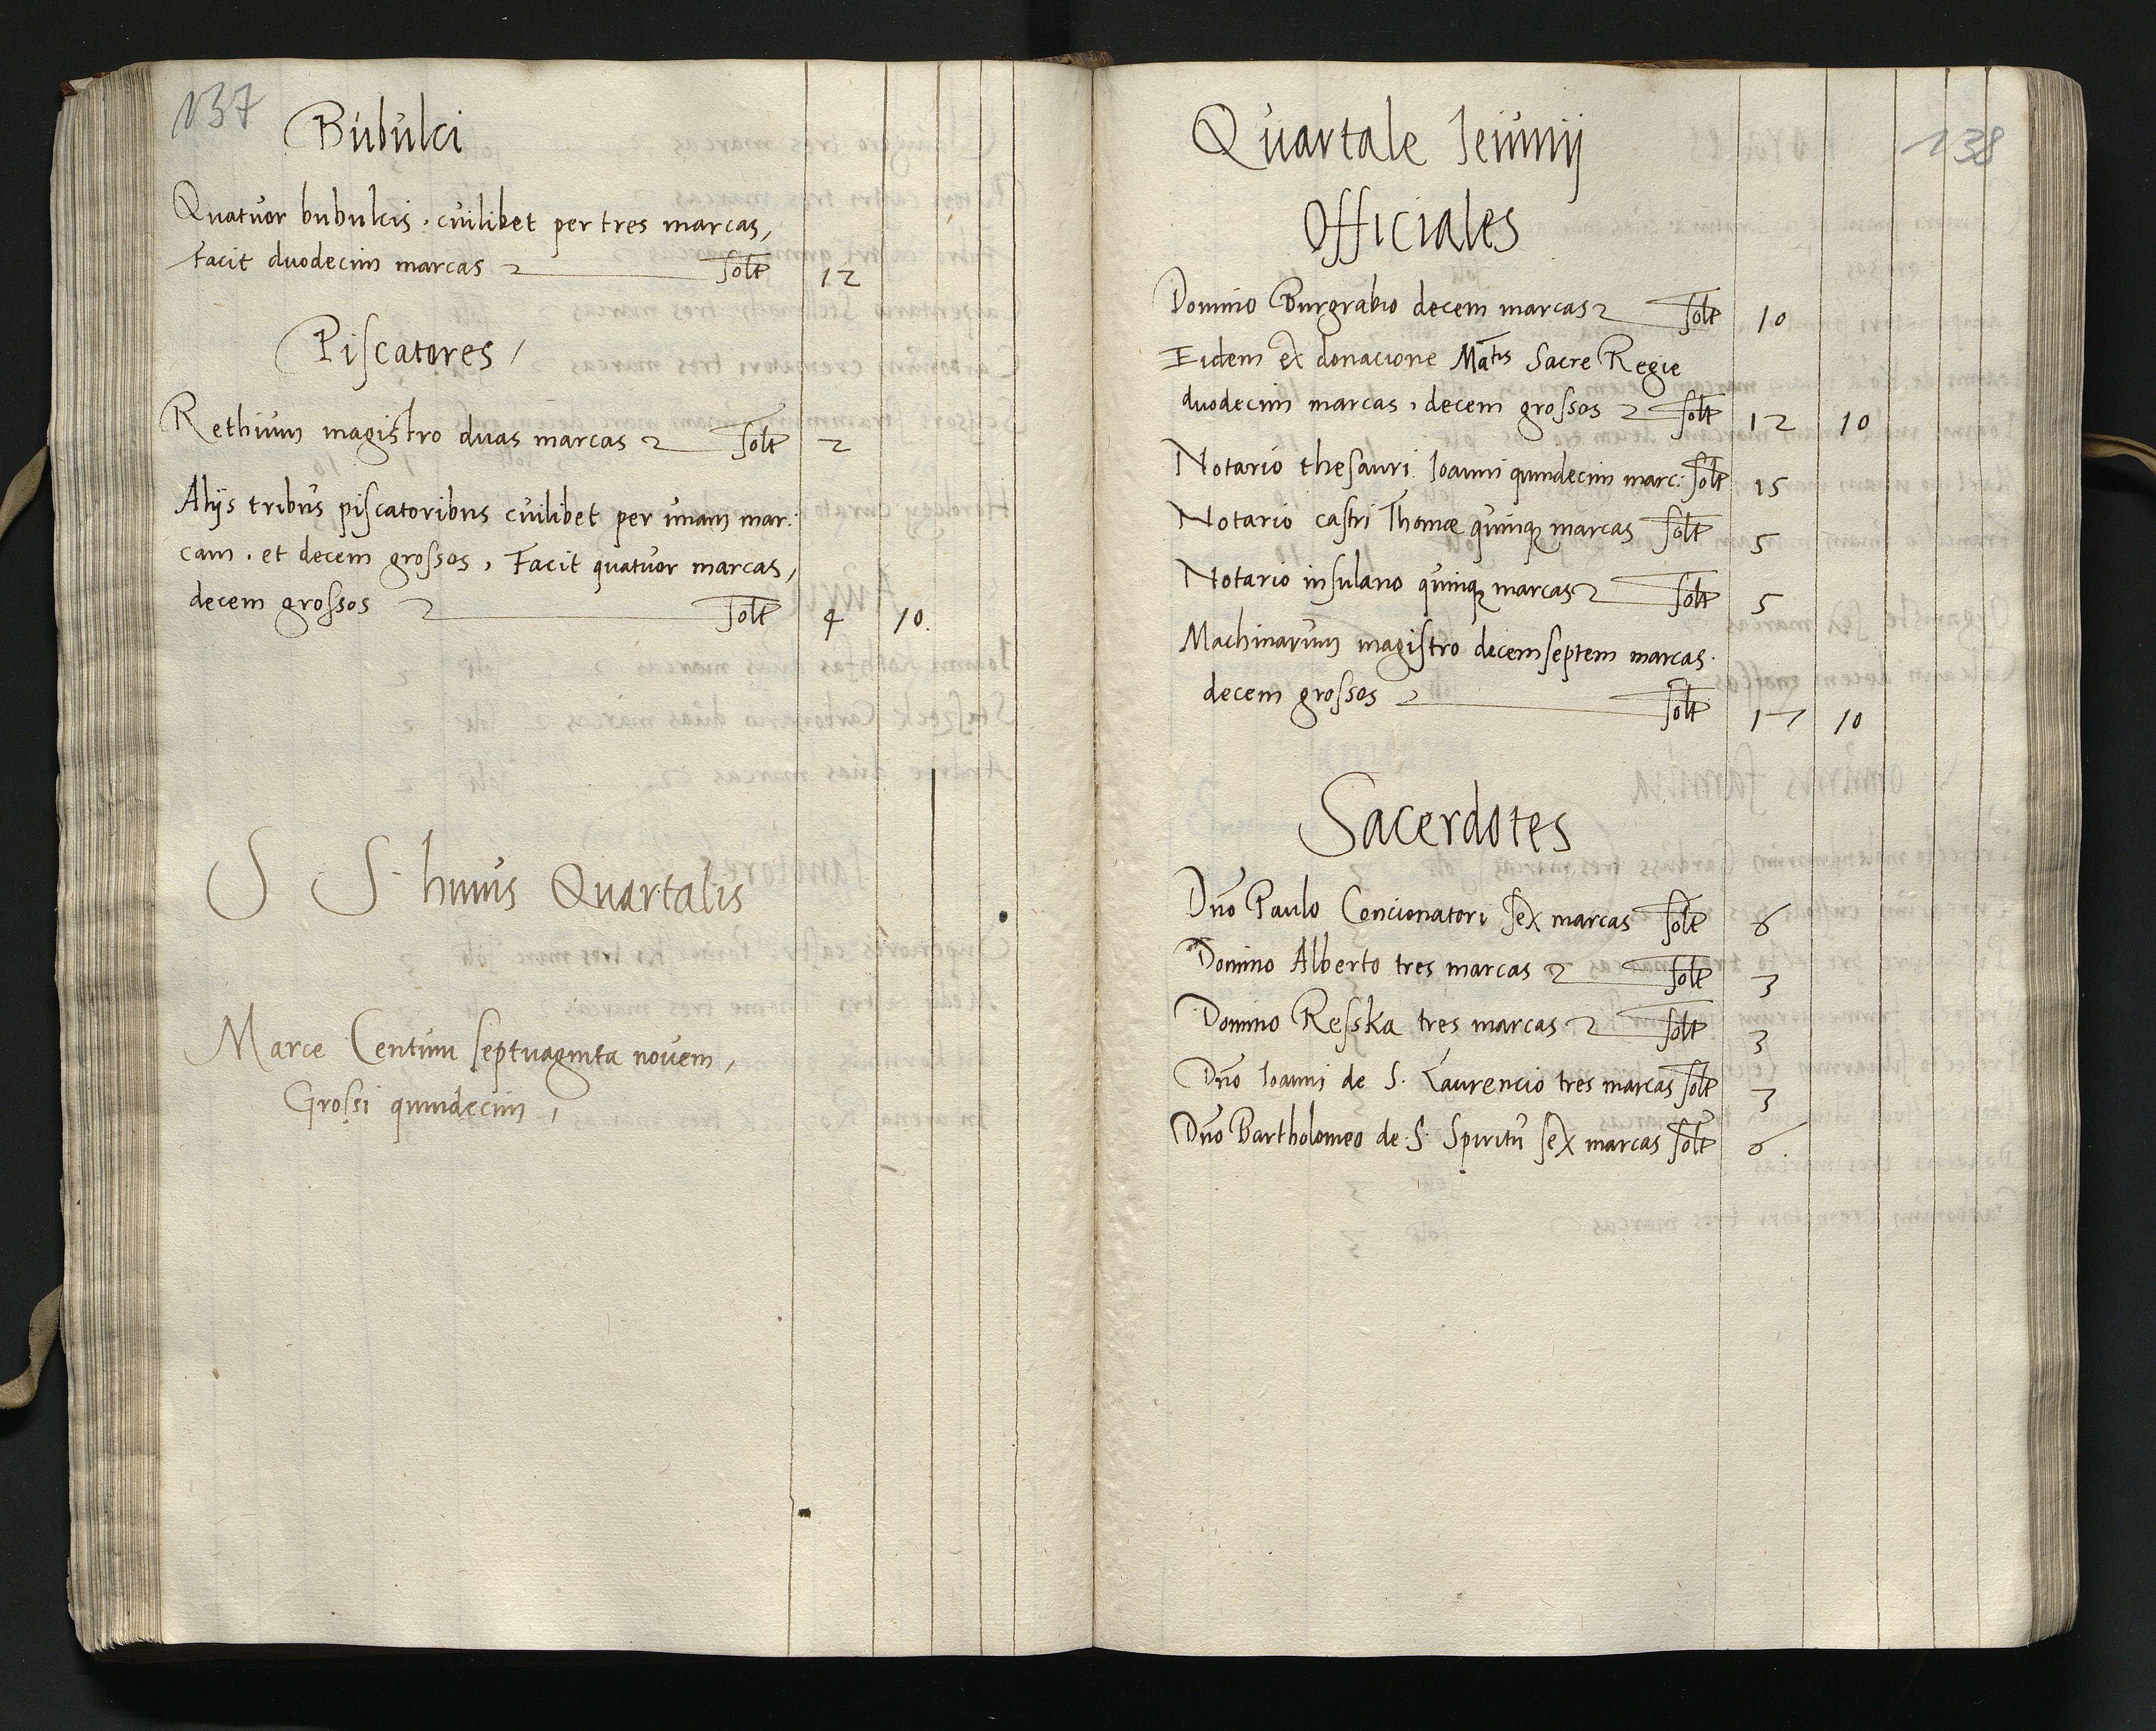 137
Bubulci
Quatuor bubulcis, cuilibet per tres marcas,
Facit duodecim marcas solt 12
Piscatores
Rethium magistro duas marcas solt 2
Alijs tribus piscatoribus cuilibet per unam mar:
cam, et decem grossos, Facit quatuor marcas,
decem grossos solt 4 10.
S S. huius Quartalis
Marce Centum septuaginta novem,
Grossi quindecim,
138
Quartale Ieiunij
Officiales
Domino Burgrabio decem marcas solt 10
Eidem ex donacione Matis Sacre Regie
duodecim marcas, decem grossos solt 12 10
Notario thesauri Ioanni quindecim marc: solt 15
Notario castri Thomæ quinq marcas solt 5
Notario insulano quinq marcas solt 5
Machinarum magistro decemseptem marcas.
decem grossos solt 17 10
Sacerdotes
Dno Paulo Concionatori sex marcas solt 6
Domino Alberto tres marcas solt 3
Domino Resska tres marcas solt 3
Dno Ioanni de S. Laurencio tres marcas solt 3
Dno Bartholomeo de S. Spiritu sex marcas solt 6.